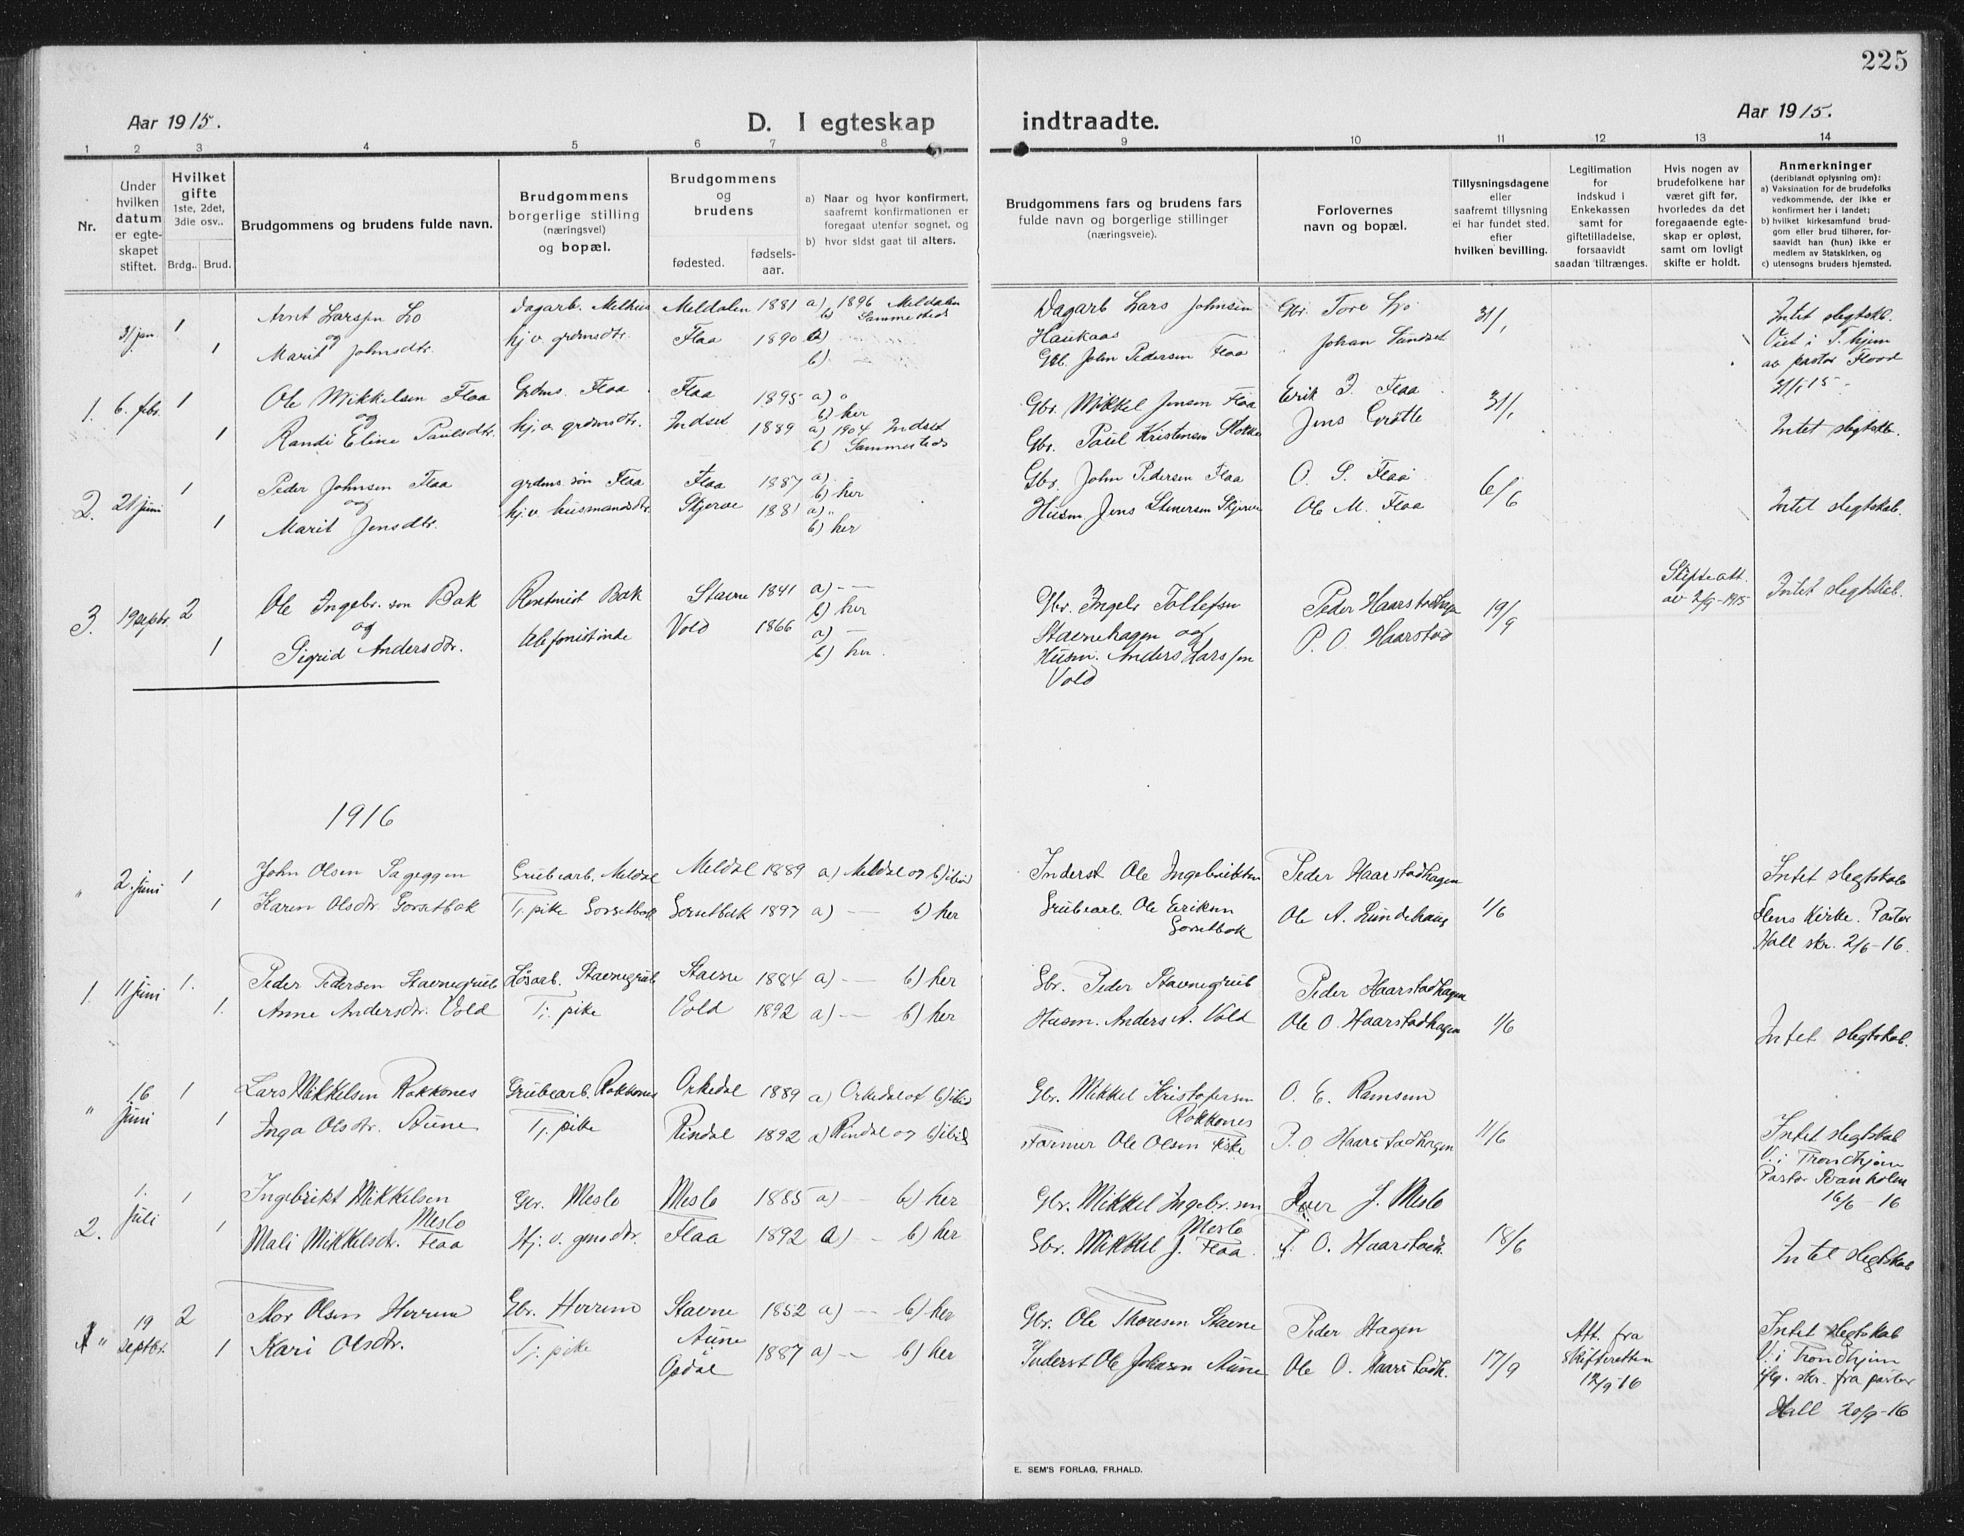 225
Aar 1915.
D. I egteskap indtraadte.
Aar 1915.
1 2 3 4 5 6 7 8 9 10 11 12 13 14
Nr.
Under hvilken datum er egteskapet stiftet.
Hvilket gifte 1ste, 2det, 3die osv..
Brdg.. Brud.
Brudgommens og brudens fulde navn.
Brudgommens borgerlige stilling (næringsvei) og bopæl.
Brudgommens og brudens
fødested.
fødselsaar.
a) Naar og hvor konfirmert, saafremt konfirmationen er foregaat utenfor sognet, og
b) hvor sidst gaat til alters.
Brudgommens fars og brudens fars fulde navn og borgerlige stillinger (næringsveie).
Forlovernes navn og bopæl.
Tillysningsdagene eller saafremt tillysning ei har fundet sted. efter hvilken bevilling.
Legitimation for indskud i Enkekassen samt for giftetilladelse, forsaavidt saadan tiltrænges.
Hvis nogen av brudefolkene har været gift før, hvorledes da det foregaaende egteskap er opløst, samt om lovligt skifte er holdt.
Anmerkninger (deriblandt oplysning om):
a) Vaksination for de brudefolks vedkommende, der ikke er konfirmert her i landet;
b) hvilket kirkesamfund brudgom eller brud tilhører, forsaavidt han (hun) ikke er medlem av Statskirken, og
c) utensogns bruders hjemsted.
31/jan 1 Arnt Larssen Lo Dagarb. Melhus Meldalen 1881 a) 1896 Meldalen b) Sammesteds Dagarb Lars Johnsen Haukaas Gbr. Tore Lo 31/1 Intet slegtsk.
og
1 Marit Johnsdtr. hj.v. grdmsdtr. Flaa 1890 a) b) Gb. John Pedersen Flaa Johan Sundset Viet i T.hjem av pastor Flood 31/1 15
1. 6. febr. 1 Ole Mikkelsen Flaa Grdms. Flaa Flaa 1895 a) b) her Gbr. Mikkel Jensen Flaa Erik J. Flaa 31/1
og
1 Randi Eline Paulsdtr. hj.v. grdmsdtr. Indset 1889 a) 1904 Indset b) Sammesteds Gbr. Paul Kristensen Jens Grøtte Intet slegtsk.
2. 21 juni 1 Peder Johnsen Flaa grdms. søn Flaa Flaa 1887 a) b) her Gbr. John Pedersen Flaa O. P. Flaa 6/6
og
1 Marit Jensdtr. hj.v. husmandsdtr. Skjerve 1881 a) " b) her Husm Jens Stenersen Skjerve Ole M. Flaa Intet slegtskab.
3. 19 septbr. 2 Ole Ingebr. søn Bak Bak Stavne 1841 a) — b) her Gbr. Ingebr Tollefsen Stavnehagen og Peder Haarstadhagen 19/9 Skifteatt. av 2/9-1915 Intet slegtskab.
og
1 Sigrid Andersdtr. telefonistinde Vold 1866 a) — b) her. Husm. Anders Larssen Vold P. O. Haarstad
1916
" 2. juni 1 John Olsen Sageggen Grubearb. Meldal Meldal 1889 a) Meldal og b) ibid Inderst Ole Ingebrikten Peder Haarstadhagen Intet slegtskab
1 Karen Olsdtr Gorsetbak Tj. pike Gorsetbak Gorsetbak 1897 a) — b) her Grubearb. Ole Eriksen Gorsetbak Ole A. Lundehaug 1/6 Elens Kirke. Pastor Hall skr. 2/6-16.
1. 11 juni 1. Peder Pedersen Stavnegrub Løsarb. Stavnegrub. Stavne 1884 a) — b) her Gbr. Peder Stavnegrub Peder Haarstadhagen
1. Anne Andersdtr. Vold Tj. pike Vold 1892 a) — b) her Husm. Anders A. Vold Ole O. Haarstadhagen 1/6 Intet slegtskab.
" 16 juni 1 Lars Mikkelsen Rokkones Grubearb. Rokkones Orkedal 1889 a) Orkedal og b) ibid Gbr. Mikkel Kristofersen Rokkones O. E. Ramsem
1 Inga Olsdtr. Aune Tj. pike Rindal 1892 a) Rindal og b) ibid Farmer Ole Olsen Fiske P. O. Haarstadhagen 11/6 Intet slegtskab V. i Trondhjem Pastor 16/6-16
2. 1. juli 1 Ingebrikt Mikkelsen Meslo Gbr. Meslo Meslo 1885 a) — b) her Gbr. Mikkel Ingebr.sen Meslo Iver J. Meslo
1 Mali Mikkelsdtr. Flaa Hj. v. gmsdtr. Flaa 1892 a) — b) her Gbr. Mikkel J. Flaa P. O. Haarstadh. 18/6 Intet slegtskab
" 19 septbr. 2 Thor Olsen Herrem Gbr. Herrem Stavne 1852 a) — b) her Gbr. Ole Thoresen Stavne Peder Hagen Att. fra skifteretten 12/9-16 Intet slegtskab
1 Kari Olsdtr. Tj. pike Aune Opdal 1887 a) — b) her Inderst Ole Johnsen Aune Ole O. Haarstadh. 17/9 V. i Trondhjem ifg. skr. fra pastor Hall 20/9-16
E. SEM'S FORLAG, FR.HALD.